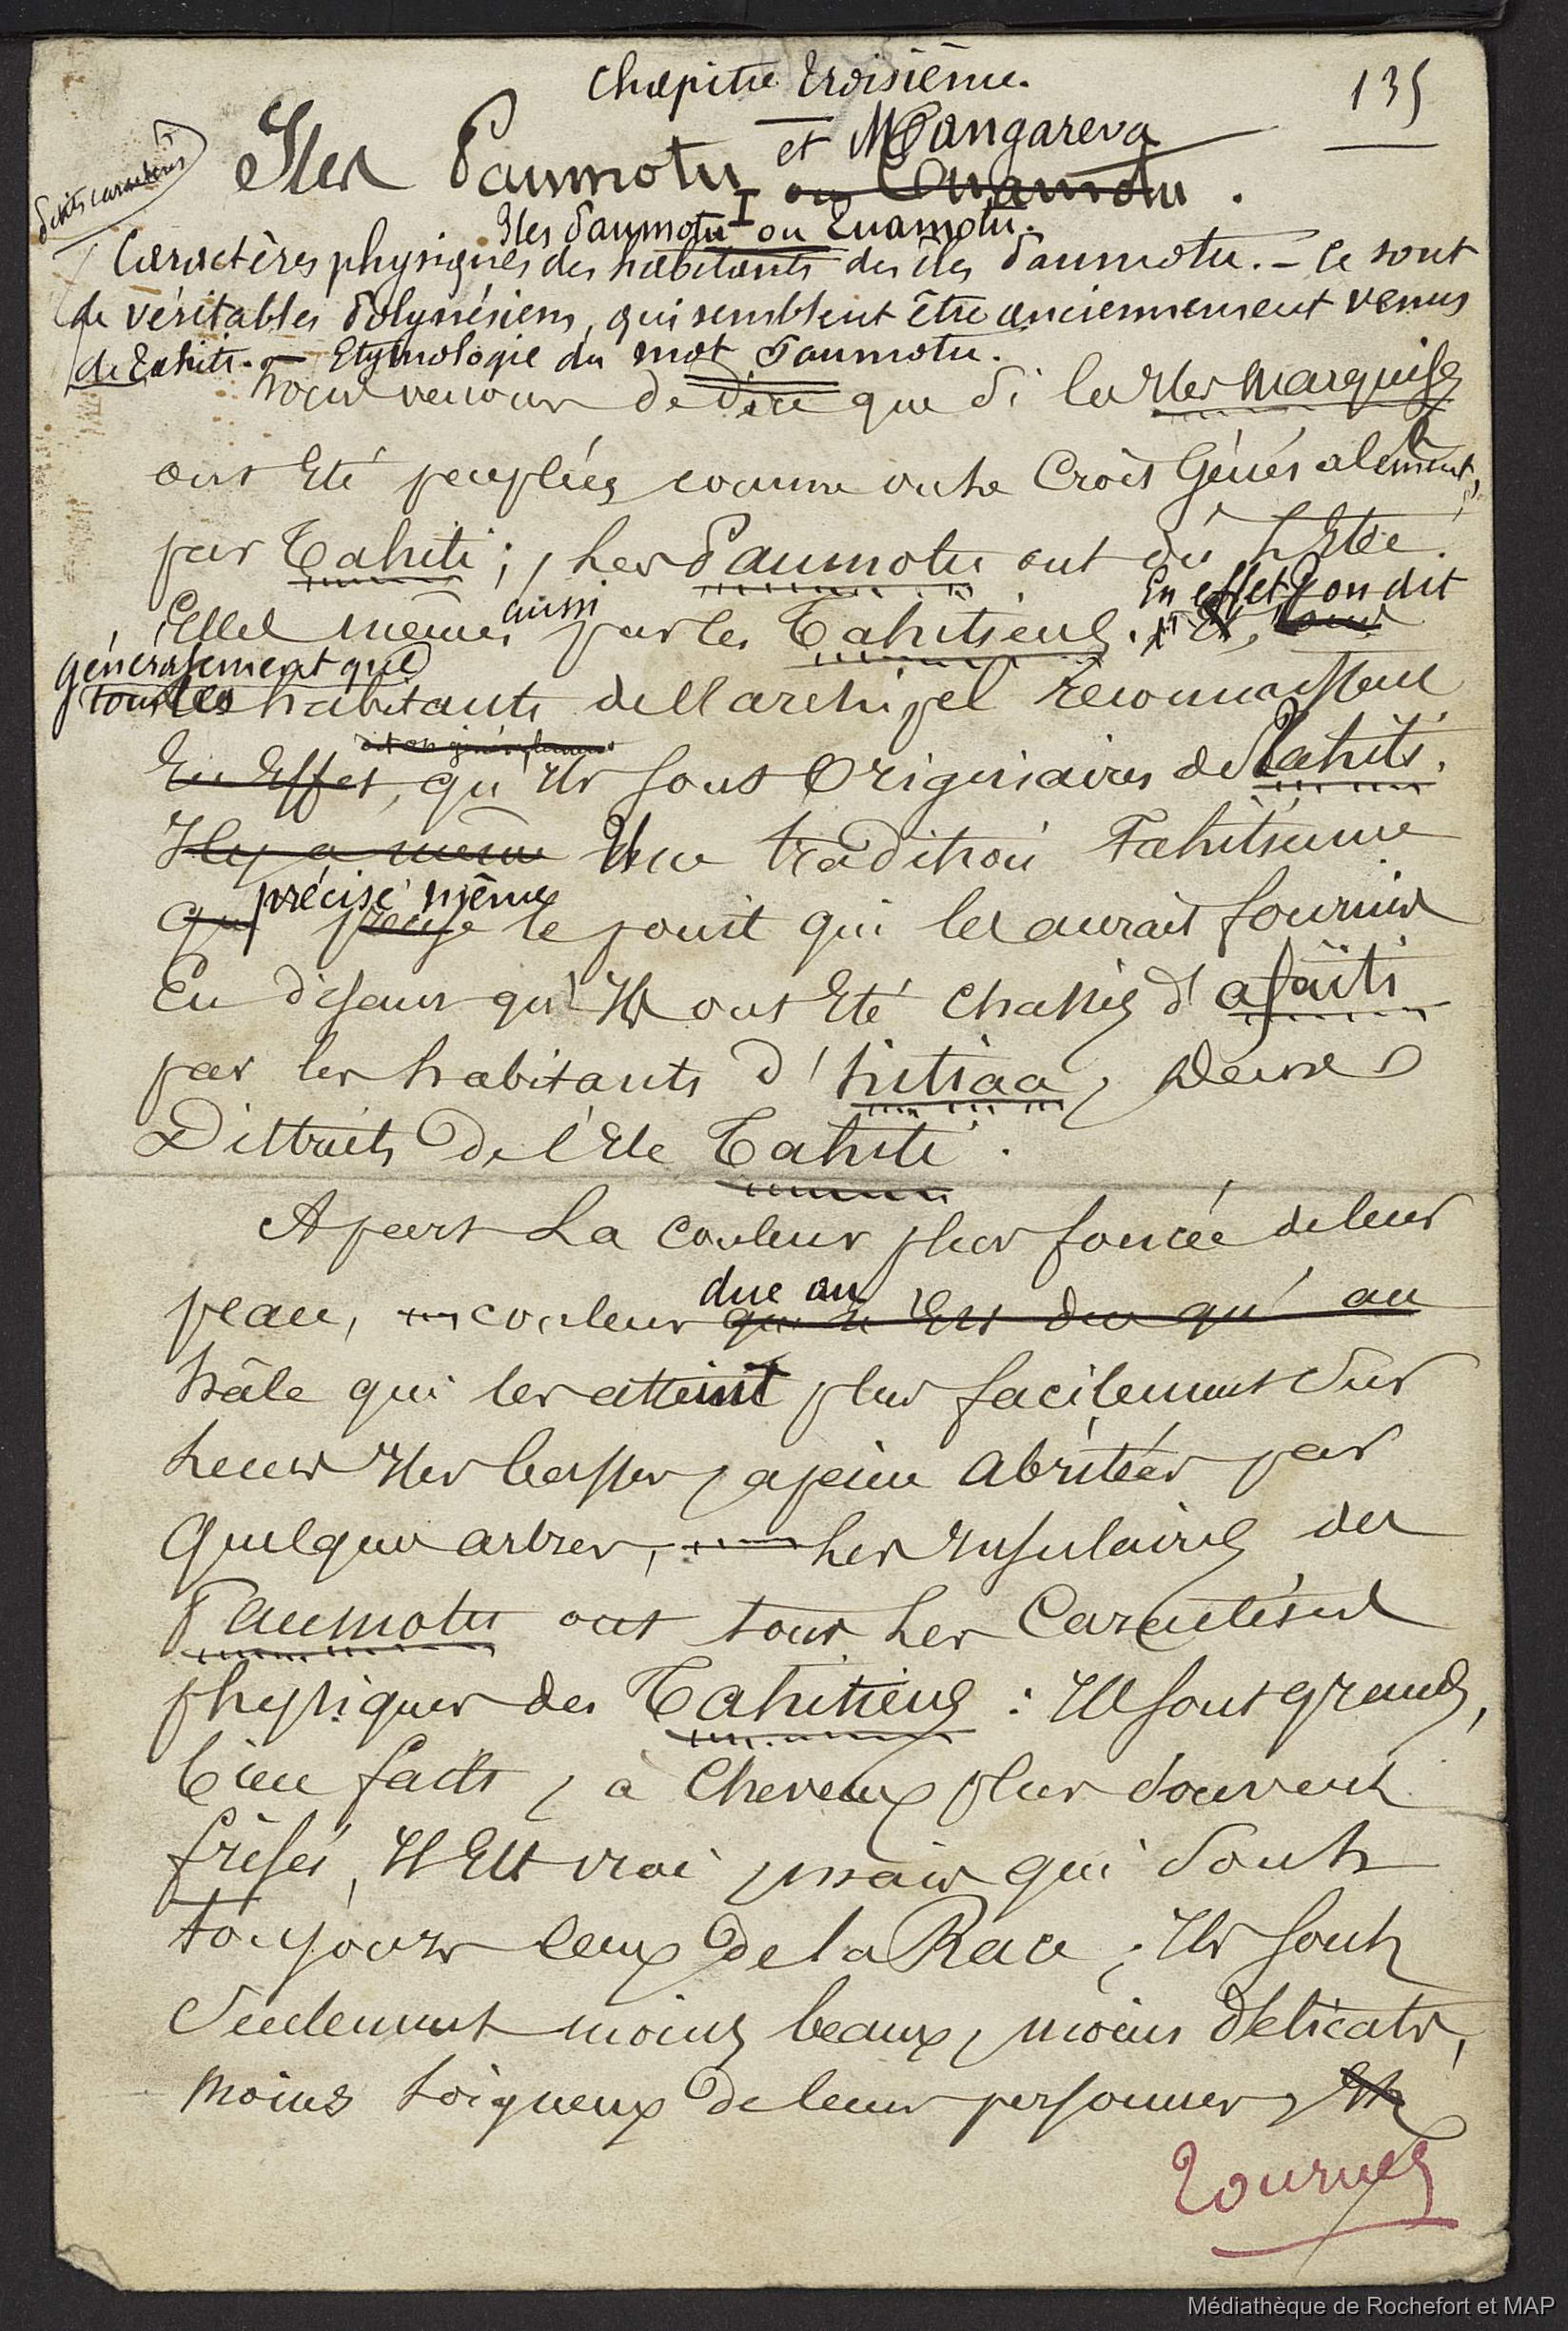 Chapitre troisième.
135
Petits caractères
Iles Paumotu et Mangareva
ou Tuamotu.
I
Iles Paumotu ou Tuamotu.
Caractères physiques des habitants des îles Paumotu. — Ce sont
de véritables Polynésiens, qui semblent être anciennement venus
de Tahiti. — Etymologie du mot Paumotu.
Nous venons de dire que si les Iles Marquises
ont Eté peuplées comme on le Croit Généralement,
par Tahiti ; les Paumotu ont dû l'Etre
Elles mêmes aussi par les Tahitiens. En effet, on dit
généralement que
tous les habitants de l'archipel reconnaissent
dit on généralement
En Effet, qu'Ils sont Originaires de Tahiti.
Il y a même Une tradition Tahitienne
précise même
qui précise le point qui les aurait fournis
En disant qu'Ils ont Eté chassés d'afaïti
par les habitants d'hitiaa, deux
Districts de l'Ile Tahiti.
A part La couleur plus foncée de leur
peau, couleur due au qui n'Est due qu'au
hâle qui les atteint plus facilement Sur
Leurs Iles basses, apeine abritées par
Quelques arbres, Les Insulaires des
Paumotu ont tous Les Caractères
physiques des Tahitiens : Ils sont grands,
bien faits, à Cheveux plus Souvent
frisés, Il Est vrai, mais qui Sont
toujours ceux de la Race ; Ils sont
Seulement moins beaux, moins délicats,
moins soigneux de leurs personnes, Et
Tournez
Médiathèque de Rochefort et MAP